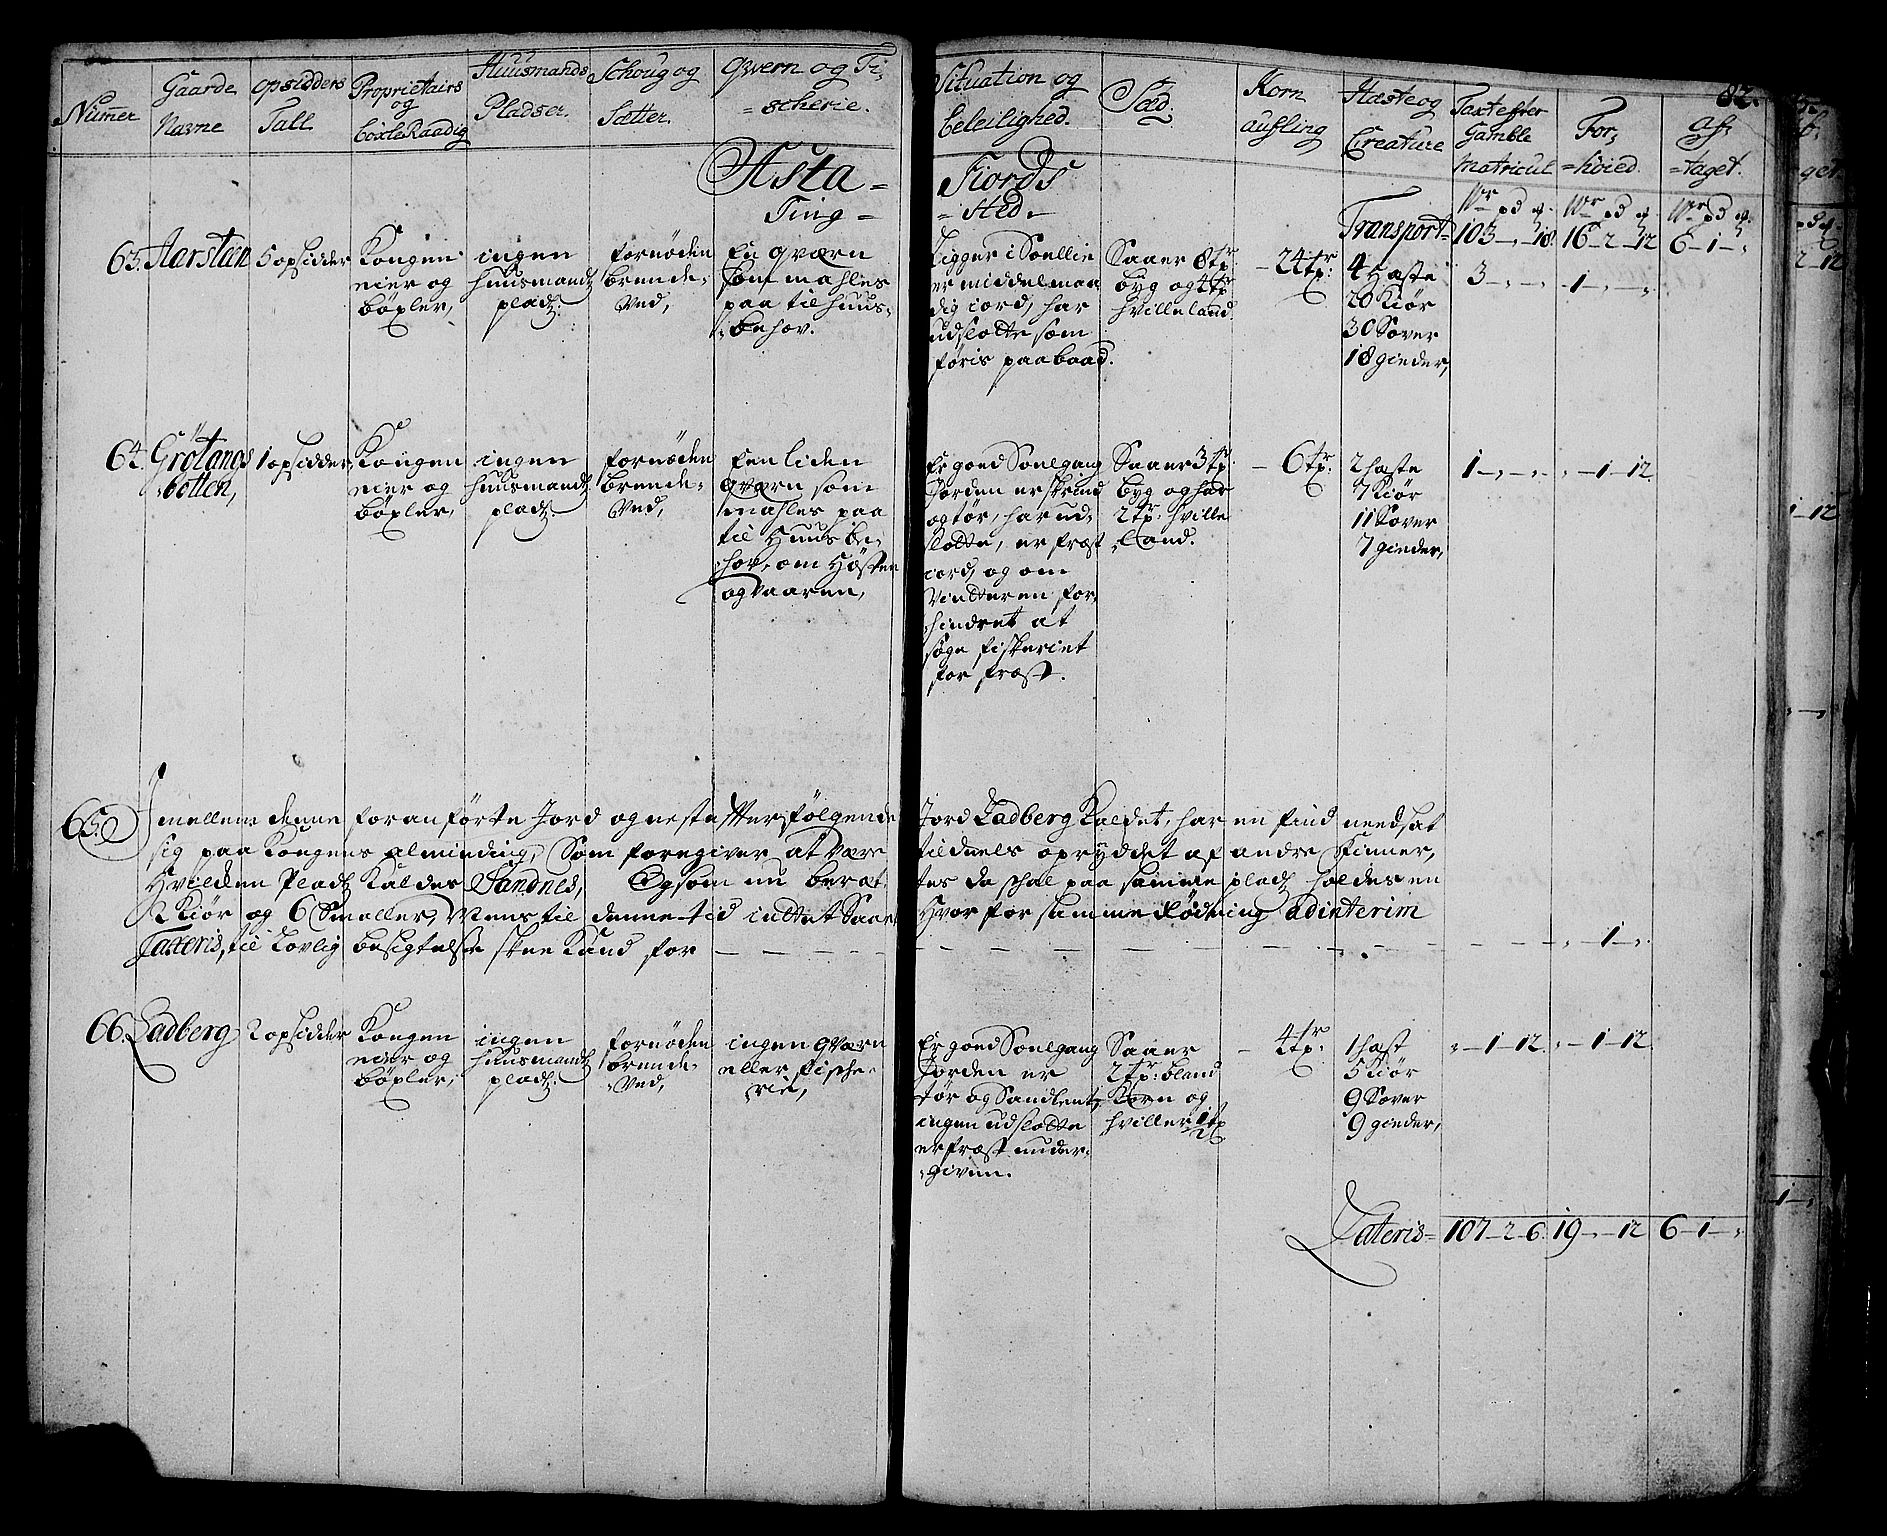 82.
Nummer
Gaarde
Navne
opsidders
Tall
Proprietairs
og
böxle Raadig
Huusmands
Pladser.
Schoug og
Sætter.
Qvern og Fi-
=scherie.
Situation og
beleilighed.
Sæd.
Korn
aufling
Hæste og
Creature
Taxt efter
Gamble
Matricul
For,
=höied.
af,
=taget.
Asta = Fiords
Ting = =sted.
Wr pd
Wr pd
Wr pd
Transport= 103 - „ - 18. 16 - 2 - 12 6 - 1 - „
63. Aarstein
5 opsidder
Kongen
eier og
böxler,
ingen
huusmands
pladz.
fornöden
brende-
Ved,
En qværn
som mahles
paa til huus-
behov.
Ligger i Soellie
er middelmaa
dig iord, har
udslotte som
föris paa baad.
Saaer 8 tr
byg og 4 tr
hvilleland
- 24 tr:
4 Hæste
20 Kiör
30 Sover
18 gieder,
3 - „ - „
1 - „ - „
64. Grötangs
botten,
1 opsidder
Kongen
eier og
böxler,
ingen
huusmands
pladz
fornöden
brende-
Ved,
Een liden
qværn som
mahles paa
til Huus be-
hov, om Hösten
og Vaaren,
Er goed Soelgang
Jorden er skrind
og tör, har ud-
slotte, er frost
iord, og om
Vintteren for-
hindret at
söge fiskeriet
for frost.
Saaer 3 tr
byg og har
2 tr: hville
land.
- 6 tr:
2 hæste
7 Kiör
11 Sover
7 gieder,
1 - „ - „
„ - 1 - 12
65. Imellem denne foranförte Jord og neste efterfölgende Jord Ladberg Kaldet, har en find needsat
sig paa Kongens alminding, Som foregiver at være tildeels opryddet af andre Finner,
Hvilken Pladz Kaldes Sandnes, Og som nu beret- tes da schal paa samme pladz holdes en
2 Kiör og 6 Smaller, Mens til denne tid inttet Saaer Hvorfor samme Rödning ad interim
Taxeris, til Lovlig besigtelse skee Kand for - - - - „ - 1 - „
66. Ladberg
2 opsidder
Kongen
eier og
böxler,
ingen
huusmands
pladz.
fornöden
brende-
Ved,
ingen qværn
eller fische-
rie,
Er goed Soelgang
Jorden er
tör og Sandlent,
ingen udslotte
er frost under-
given.
Saaer
2 tr: bland
Korn og
hviller 1/2 tr
- 4 tr:
1 hæst
5 Kiör
9 Sover
9 gieder,
„ - 1 - 12.
„ - 1 - 12
Lateris= 107 - 2 - 6. 19 - „ - 12 6 - 1 - „